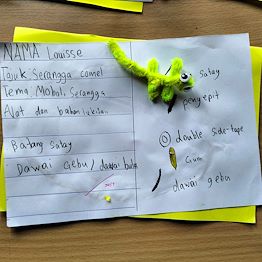 NAMA Louisse
Tajuk Serangga comel
Tema Mobil Serangga
Alat dan bahan lukisan
Batang satay
Dawai Gebu / dawai bulu
satay
penyepit
double side-tape
Gum
dawai gebu